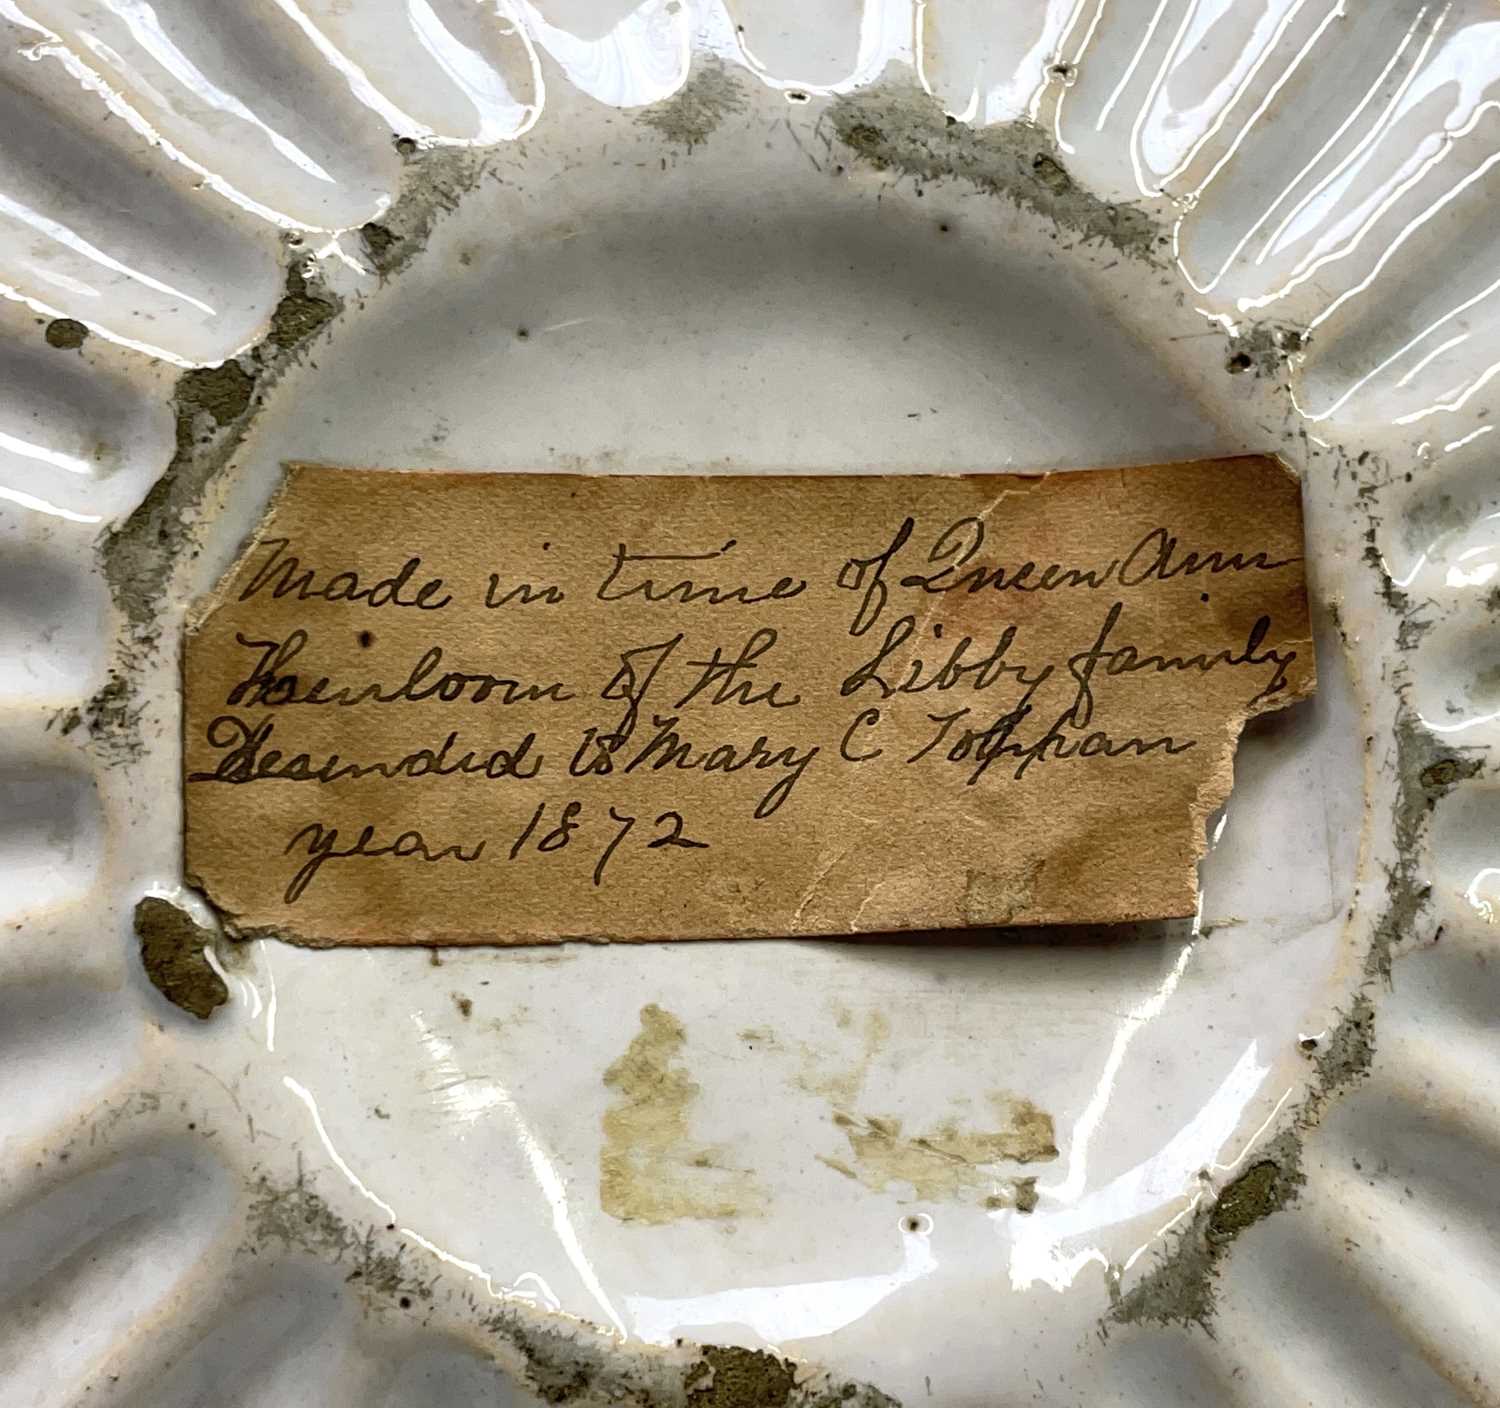 Made in time of Queen Ann
Heirloom of the Libby family
Desendid to Mary C Toppan
year 1872